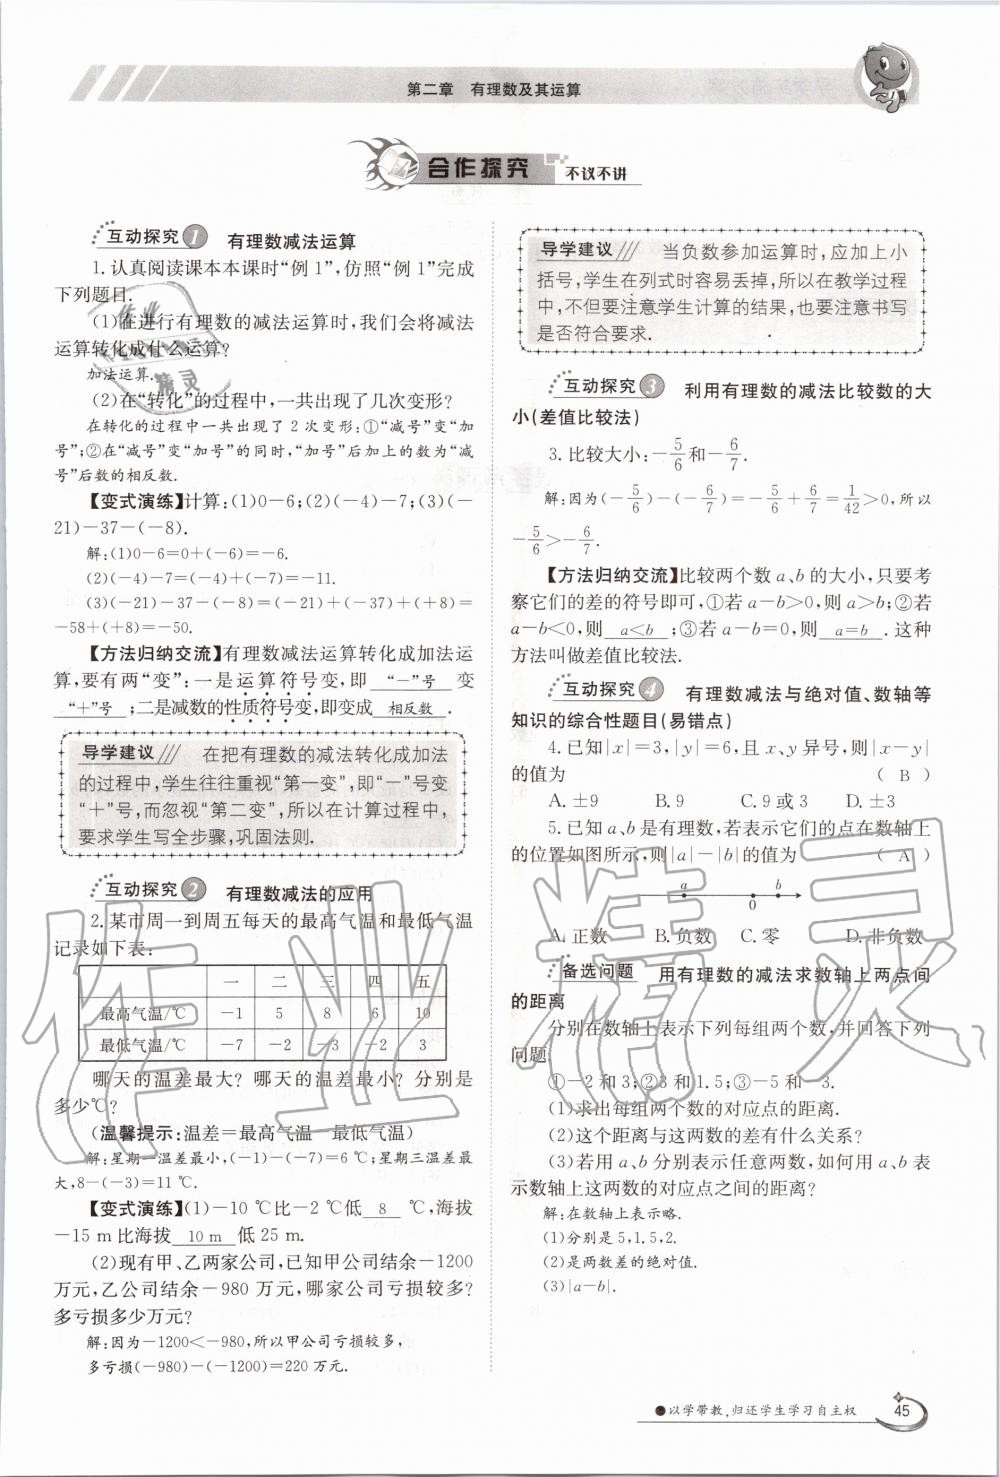 第二章 有理数及其运算
合作探究 不议不讲
互动探究1 有理数减法运算
1.认真阅读课本本课时“例1”,仿照“例1”完成
下列题目.
(1)在进行有理数的减法运算时,我们会将减法
运算转化成什么运算?
加法运算.
(2)在“转化”的过程中,一共出现了几次变形?
在转化的过程中一共出现了2次变形:①“减号”变“加
号”;②在“减号”变“加号”的同时,“加号”后加上的数为“减
号”后数的相反数.
【变式演练】计算:(1)0-6;(2)(-4)-7;(3)(-
21)-37-(-8).
解:(1)0-6=0+(-6)=-6.
(2)(-4)-7=(-4)+(-7)=-11.
(3)(-21)-37-(-8)=(-21)+(-37)+(+8)=
-58+(+8)=-50.
【方法归纳交流】有理数减法运算转化成加法运
算,要有两“变”:一是运算符号变,即 “-”号 变
“+”号 ;二是减数的性质符号变,即变成 相反数 .
导学建议 在把有理数的减法转化成加法
的过程中,学生往往重视“第一变”,即“一”号变
“+”号,而忽视“第二变”,所以在计算过程中,
要求学生写全步骤,巩固法则.
互动探究2 有理数减法的应用
2.某市周一到周五每天的最高气温和最低气温
记录如下表:
一 二 三 四 五
最高气温/℃ -1 5 8 6 10
最低气温/℃ -7 -2 -3 -2 3
哪天的温差最大?哪天的温差最小?分别是
多少℃?
(温馨提示:温差=最高气温-最低气温)
解:星期一温差最小,(-1)-(-7)=6 ℃;星期三温差最
大,8-(-3)=11 ℃.
【变式演练】(1)-10 ℃比-2 ℃低 8 ℃,海拔
-15 m比海拔 10 m 低25 m.
(2)现有甲、乙两家公司,已知甲公司结余-1200
万元,乙公司结余-980万元,哪家公司亏损较多?
多亏损多少万元?
解:因为-1200<-980,所以甲公司亏损较多,
多亏损(-980)-(-1200)=220万元.
导学建议 当负数参加运算时,应加上小
括号,学生在列式时容易丢掉,所以在教学过程
中,不但要注意学生计算的结果,也要注意书写
是否符合要求.
互动探究3 利用有理数的减法比较数的大
小(差值比较法)
3.比较大小:-5/6和-6/7.
解:因为(-5/6)-(-6/7)=-5/6+6/7=1/42>0,所以
-5/6>-6/7.
【方法归纳交流】比较两个数a、b的大小,只要考
察它们的差的符号即可,①若a-b>0,则a>b;②若
a-b<0,则 a<b ;③若a-b=0,则 a=b .这种
方法叫做差值比较法.
互动探究4 有理数减法与绝对值、数轴等
知识的综合性题目(易错点)
4.已知|x|=3,|y|=6,且x、y异号,则|x-y|
的值为 ( B )
A.±9 B.9 C.9或3 D.±3
5.已知a、b是有理数,若表示它们的点在数轴上
的位置如图所示,则|a|-|b|的值为 ( A )
a 0 b
A.正数 B.负数 C.零 D.非负数
备选问题 用有理数的减法求数轴上两点间
的距离
分别在数轴上表示下列每组两个数,并回答下列
问题
①-2和3;②3和1.5;③-5和-3.
(1)求出每组两个数的对应点的距离.
(2)这个距离与这两数的差有什么关系?
(3)若用a、b分别表示任意两数,如何用a、b表
示数轴上这两数的对应点之间的距离?
解:在数轴上表示略.
(1)分别是5,1.5,2.
(2)是两数差的绝对值.
(3)|a-b|.
以学带教,归还学生学习自主权
45
作业精灵
作业
精灵